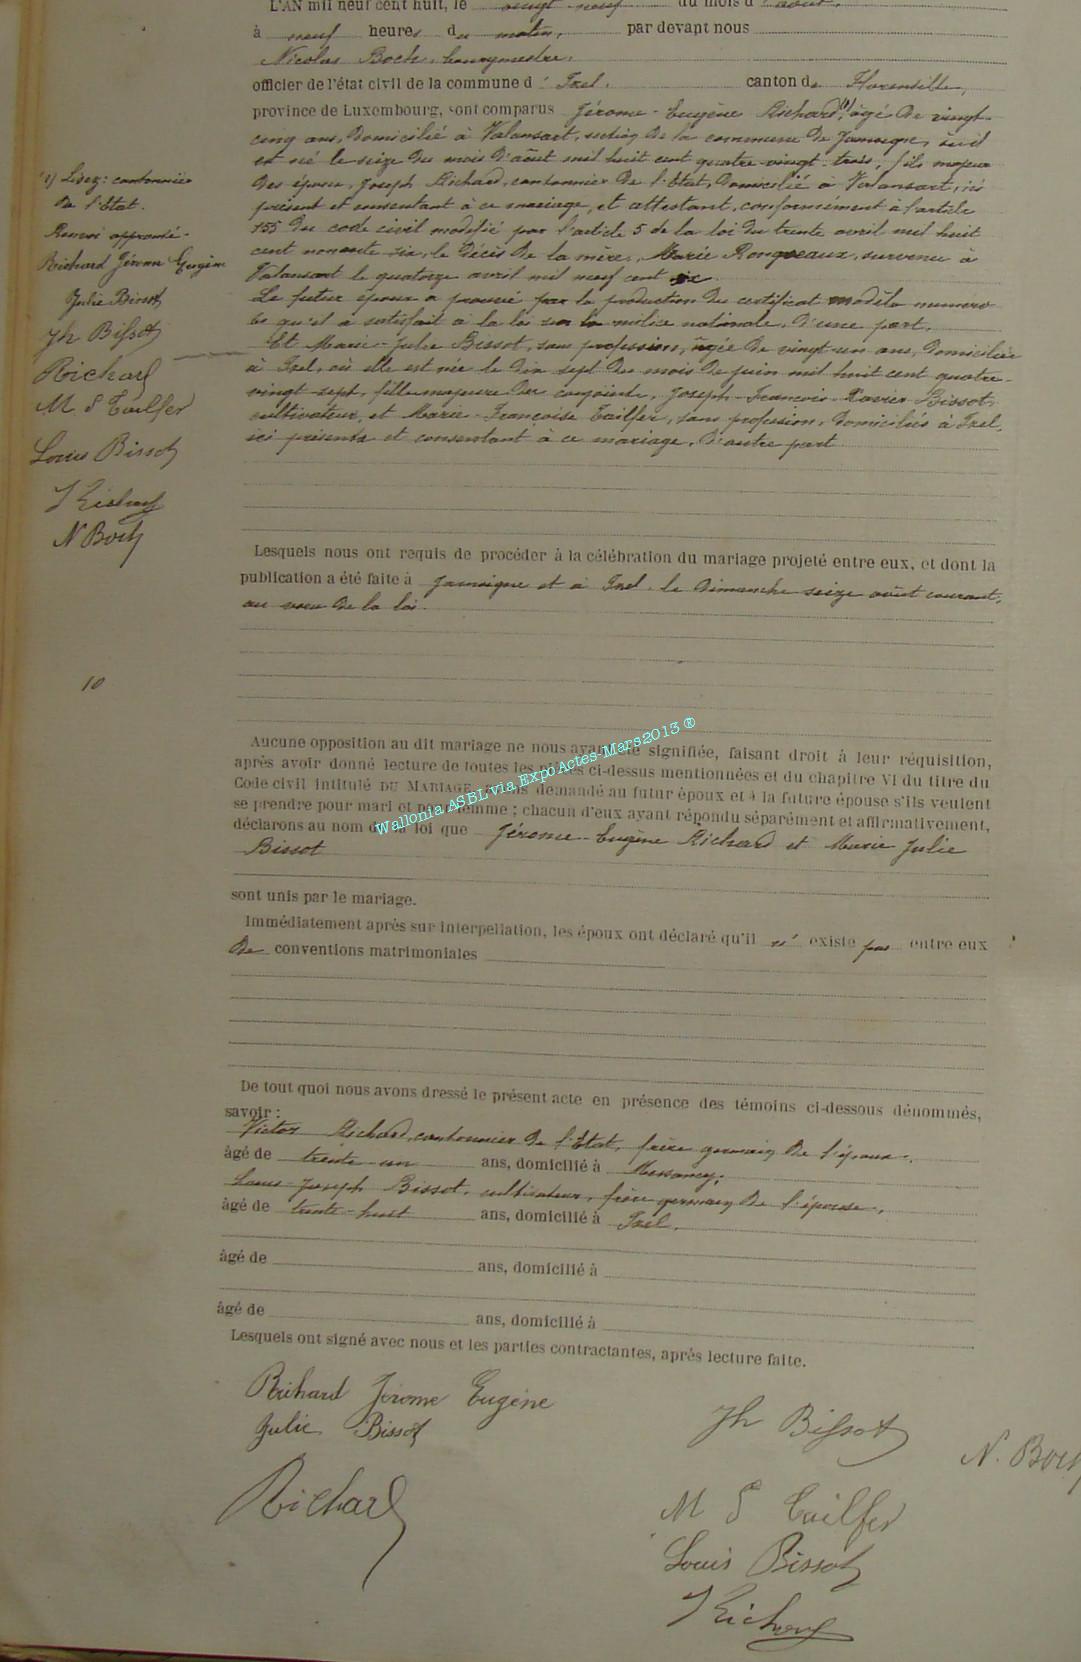 L'AN mil neuf cent huit, le vingt neuf du mois d'août,
à neuf heures du matin, par devant nous
Nicolas Boch, bourgmestre,
officier de l'état civil de la commune d'Izel, canton de Florenville,
province de Luxembourg, sont comparus Jérome-Eugène Richard (1), âgé de vingt-
cinq ans, domicilié à Valansart, section de la commune de Jamoigne, où il
est né le seize du mois d'août mil huit cent quatre-vingt-trois, fils majeur
des époux, Joseph Richard, cantonnier de l'Etat, domicilié à Valansart, ici
présent et consentant à ce mariage, et attestant, conformément à l'article
155 du code civil modifié par l'article 5 de la loi du trente avril mil huit
cent nonante-six, le décès de la mère, Marie Rongveaux, survenu à
Valansart le quatorze avril mil neuf cent six
Le futur époux a prouvé par la production du certificat modèle numéro
qu'il a satisfait à la loi sur la milice nationale, d'une part,
Et Marie-Julie Bissot, sans profession, âgée de vingt-un ans, domiciliée
à Izel, où elle est née le dix sept du mois de juin mil huit cent quatre-
vingt-sept, fille majeure des conjoints, Joseph-François-Xavier Bissot,
cultivateur, et Marie-Françoise Tailfer, sans profession, domiciliés à Izel,
ici présents et consentant à ce mariage, d'autre part
(1) Lisez: cantonnier
de l'Etat.
Renvoi approuvé.
Richard Jérome Eugène
Julie Bissot
Jh Bissot
Richard
M F Tailfer
Louis Bissot
Richard
N Boch
Lesquels nous ont requis de procéder à la célébration du mariage projeté entre eux, et dont la
publication a été faite à Jamoigne et à Izel, le dimanche seize août courant,
au vœu de la loi.
10
Aucune opposition au dit mariage ne nous ayant été signifiée, faisant droit à leur réquisition,
après avoir donné lecture de toutes les pièces ci-dessus mentionnées et du chapitre VI du titre du
Code civil intitulé DU MARIAGE, avons demandé au futur époux et à la future épouse s'ils veulent
se prendre pour mari et pour femme ; chacun d'eux ayant répondu séparément et affirmativement,
déclarons au nom de la loi que Jérome-Eugène Richard et Marie Julie
Bissot
Wallonia ASBL via Expo Actes-Mars2013 ®
sont unis par le mariage.
Immédiatement après sur interpellation, les époux ont déclaré qu'il n'existe pas entre eux
de conventions matrimoniales
De tout quoi nous avons dressé le présent acte en présence des témoins ci-dessous dénommés,
savoir :
Victor Richard, cantonnier de l'Etat, frère germain de l'époux,
âgé de trente-un ans, domicilié à Messancy;
Louis-Joseph Bissot, cultivateur, frère germain de l'épouse,
âgé de trente-huit ans, domicilié à Izel.
âgé de ans, domicilié à
âgé de ans, domicilié à
Lesquels ont signé avec nous et les parties contractantes, après lecture faite.
Richard Jérome Eugène
Julie Bissot
Jh Bissot
N. Boch
Richard
M F Tailfer
Louis Bissot
Richard